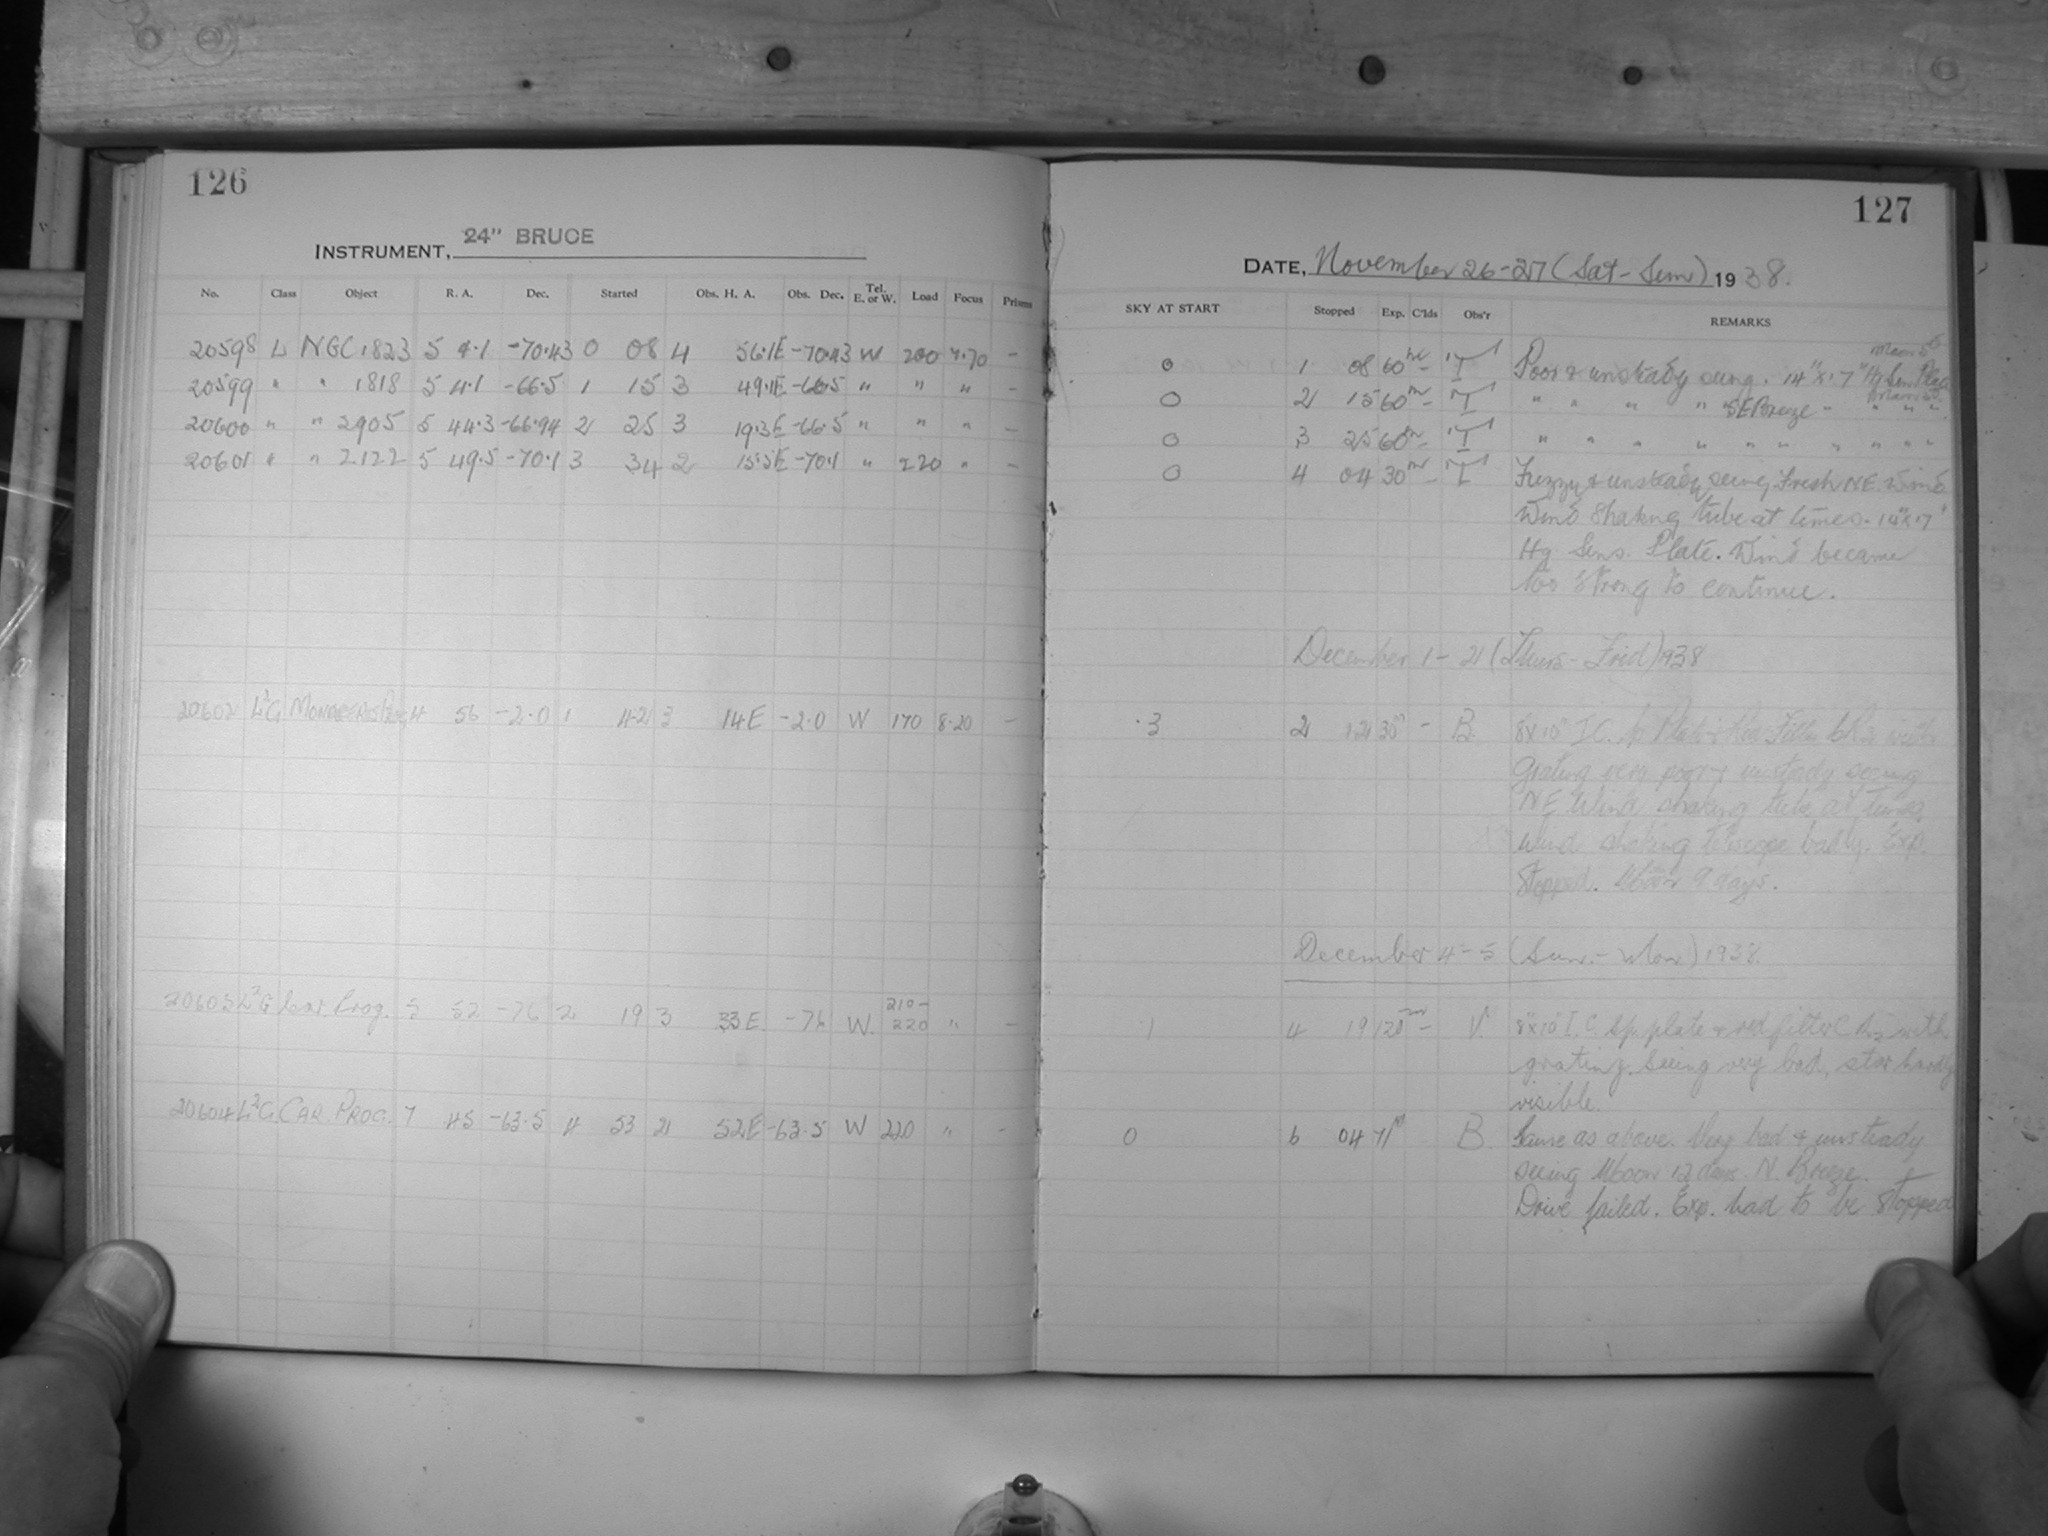 126
INSTRUMENT, 24" BRUCE
No. Class Object R. A. Dec. Started Obs. H. A. Obs. Dec. Tel. E. or W. Load Focus Prisms
20598 L NGC 1823 5 4.1 -70.43 0 08 4 56.1E -70.43 W 200 7.70 -
20599 " " 1818 5 4.1 -66.5 1 15 3 49.1E -66.5 " " " -
20600 " " 2905 5 44.3 -66.94 2 25 3 19.3E -66.5 " " " -
20601 " " 2122 5 49.5 -70.1 3 34 2 15.5E -70.1 " 220 " -
20602 L²G 4 56 -2.0 1 42 3 14E -2.0 W 170 8.20 -
20603 L²G Car. Prog. 5 52 -76 2 19 3 33E -76 W. 210-220 " -
20604 L²G. CAR. PROG. 7 45 -63.5 4 53 2 52E -63.5 W 220 " -
127
DATE, November 26-27 (Sat-Sun) 1938.
SKY AT START Stopped Exp. C'lds Obs'r REMARKS
0 1 08 60m - T Poor & unsteady seeing. 14"x17" Hg Sens Plate
0 2 15 60m - T " " " " SE Breeze - " " "
0 3 25 60m - T " " " " " " " " " "
0 4 04 30m - T Fuzzy & unsteady seeing Fresh NE. Wind
Wind shaking tube at times. 14"x17"
Hg Sens. Plate. Wind became
too strong to continue.
December 1-2 (Thurs-Frid) 1938
3 2 12 30m - B. 8x10" I.C. Sp. Plate & Red Filter with
Grating very poor & unsteady seeing
NE Wind shaking tube at times
Wind shaking telescope badly. Exp.
Stopped. Moon 9 days.
December 4-5 (Sun.-Mon.) 1938.
1 4 19 120m - V. 8"x10" I.C. Sp. plate & red filter with
grating. Seeing very bad, star hardly
visible.
0 6 04 71m B. Same as above. Very bad & unsteady
seeing Moon 12 days. N. Breeze.
Drive failed. Exp. had to be stopped